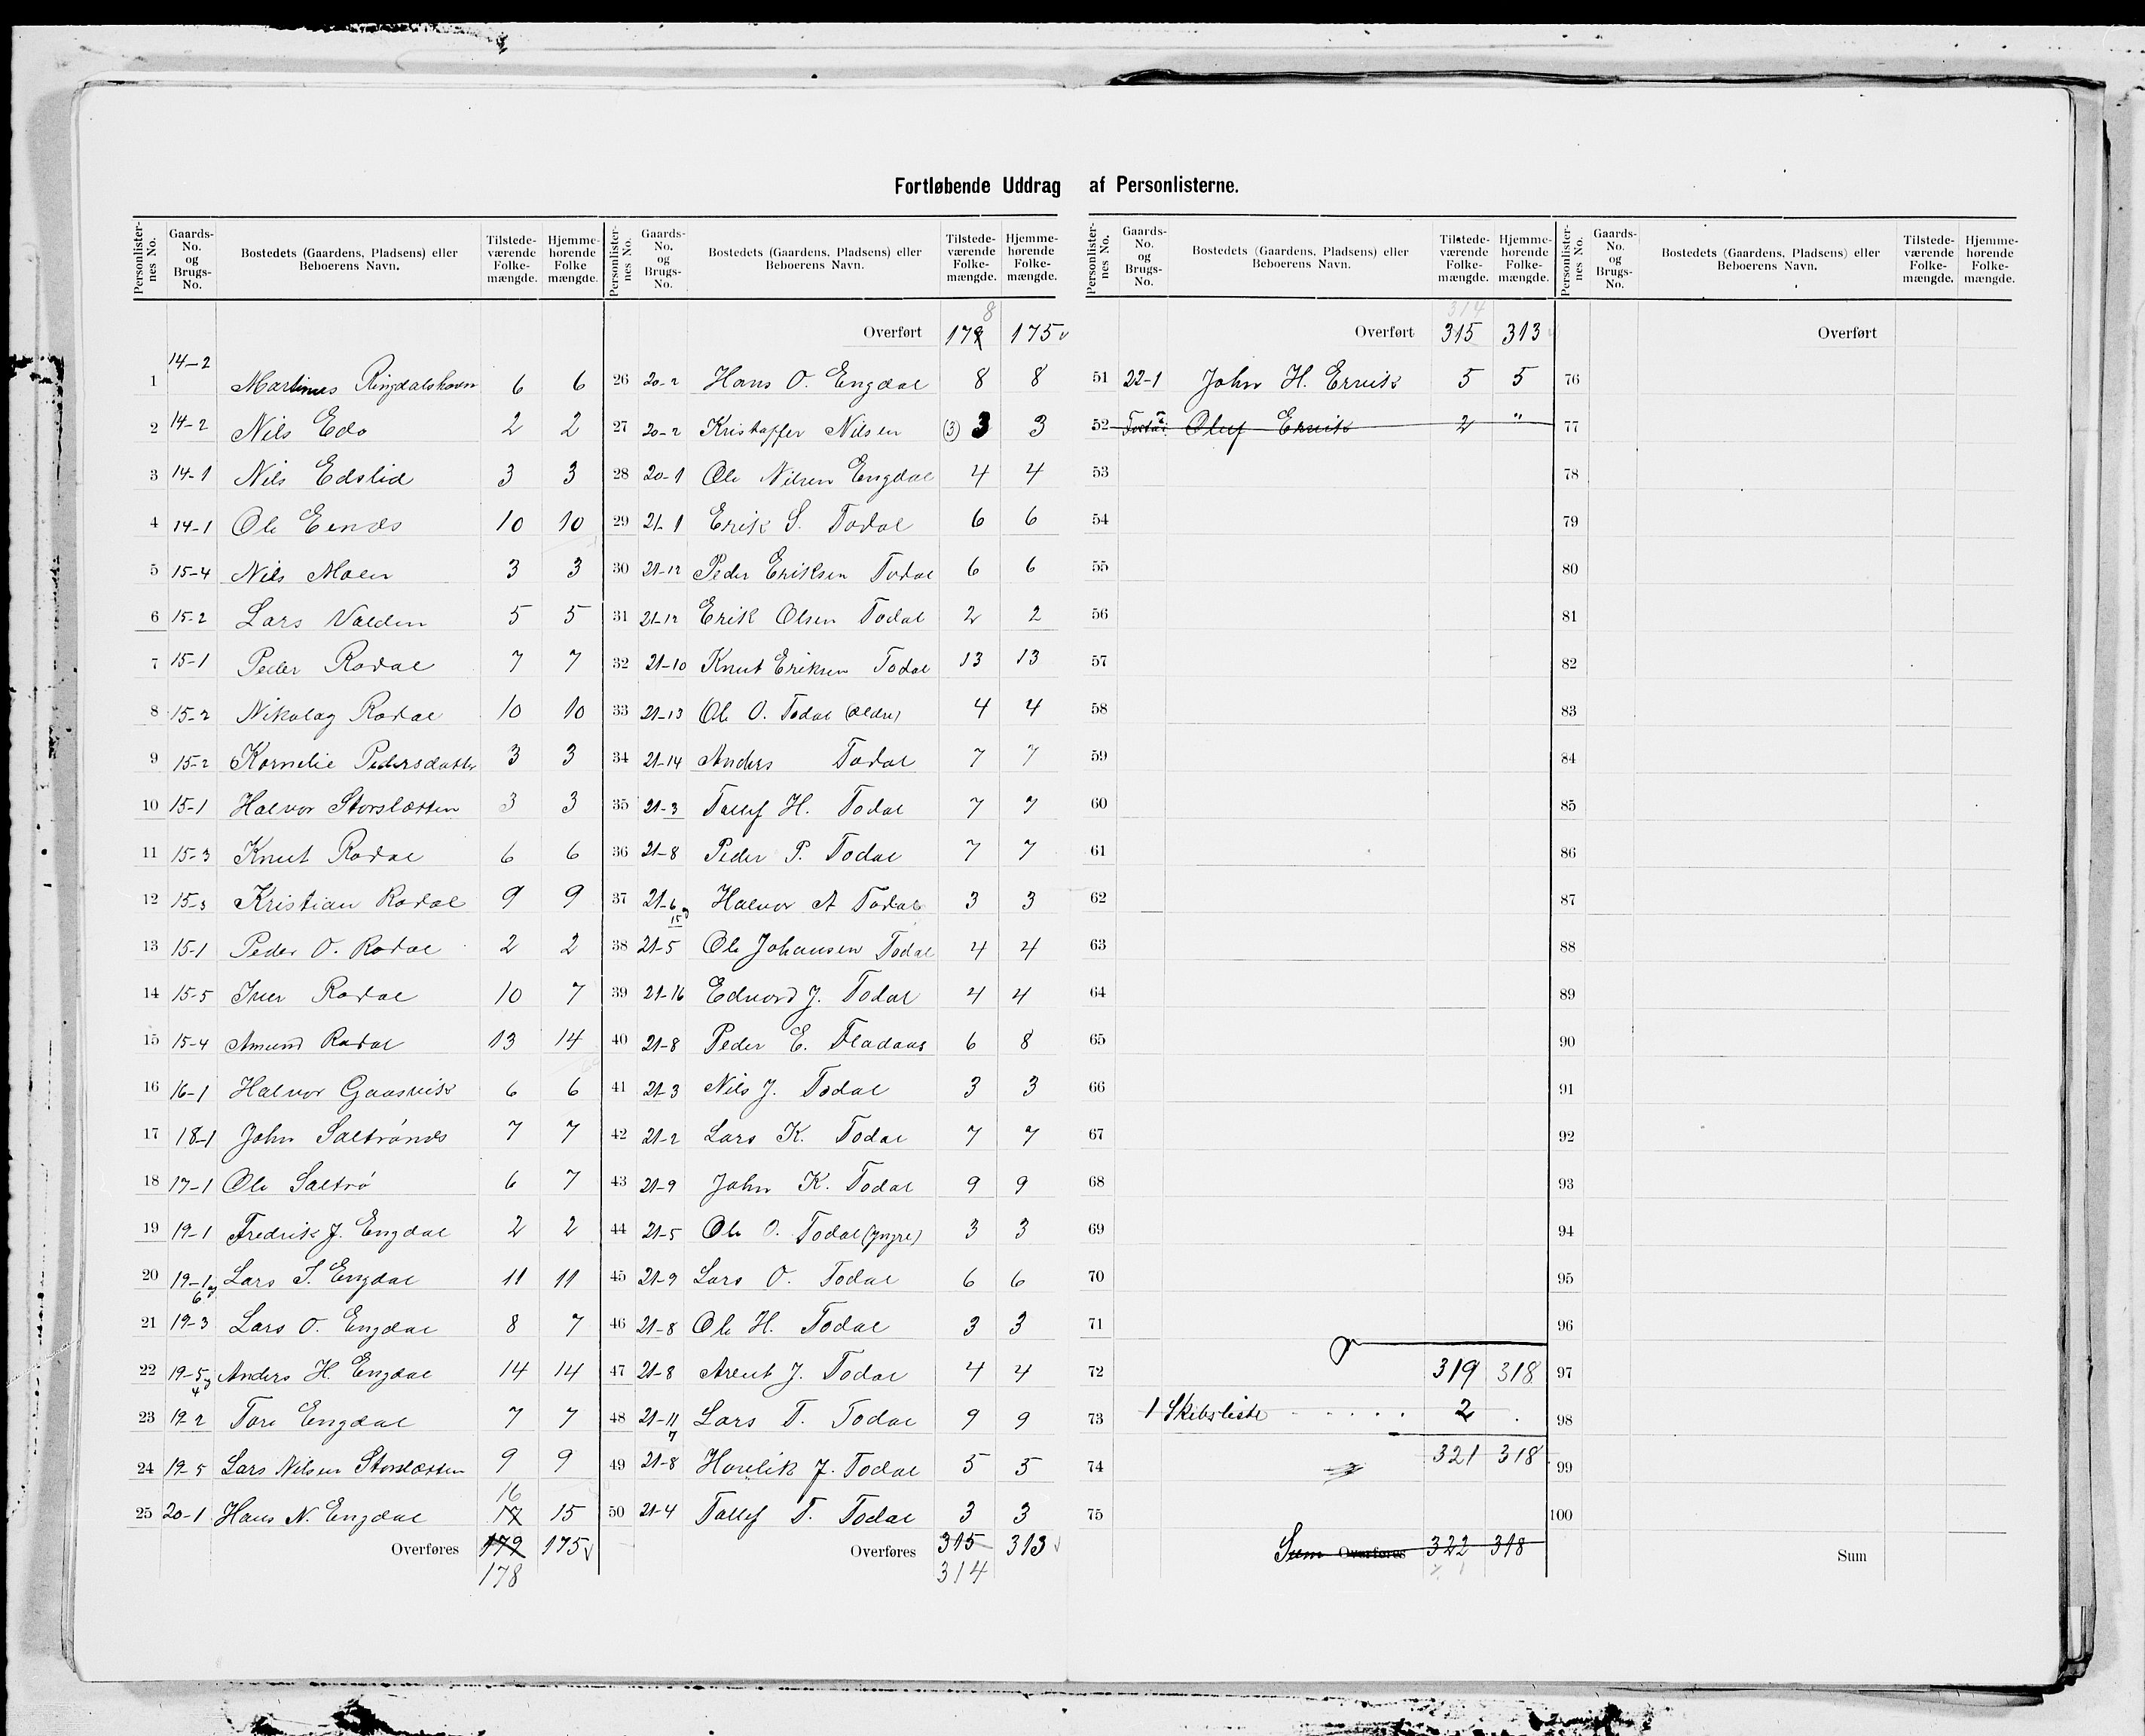 Fortløbende Uddrag af Personlisterne.
Personlister-nes No. Gaards-No. og Brugs-No. Bostedets (Gaardens, Pladsens) eller Beboerens Navn. Tilstede-værende Folke-mængde. Hjemme-hørende Folke mængde.
1 14-2 Martinus Ringdalshavn 6 6
2 14-2 Nils Edo 2 2
3 14-1 Nils Edslid 3 3
4 14-1 Ole Eends 10 10
5 15-4 Nils Moen 3 3
6 15-2 Lars Valden 5 5
7 15-1 Peder Rodal 7 7
8 15-2 Nikolay Rodal 10 10
9 15-2 Kornelie Pedersdatter 3 3
10 15-1 Halvor Storslætten 3 3
11 15-3 Knut Rodal 6 6
12 15-3 Kristian Rodal 9 9
13 15-1 Peder O. Rodal 2 2
14 15-5 Iver Rodal 10 7
15 15-4 Amund Rodal 13 14
16 16-1 Halvor Gaasvik 6 6
17 18-1 John Saltrønds 7 7
18 17-1 Ole Saltrø 6 7
19 19-1 Fredrik J. Engdal 2 2
20 19-1 og 6 Lars S. Engdal 11 11
21 19-3 Lars O. Engdal 8 7
22 19-5 og 4 Anders H. Engdal 14 14
23 19-2 Tore Engdal 7 7
24 19-5 Lars Nilsen Storslætten 9 9
16
25 20-1 Hans N. Engdal 17 15
Overføres 179 175
178
Personlister-nes No. Gaards-No. og Brugs-No. Bostedets (Gaardens, Pladsens) eller Beboerens Navn. Tilstede-værende Folke-mængde. Hjemme-hørende Folke-mængde.
8
Overført 179 175
26 20-2 Hans O. Engdal 8 8
27 20-2 Kristoffer Nilsen (3) 3 3
28 20-1 Ole Nilsen Engdal 4 4
29 21-1 Erik S. Todal 6 6
30 21-12 Peder Eriksen Todal 6 6
31 21-12 Erik Olsen Todal 2 2
32 21-10 Knut Eriksen Todal 13 13
33 21-13 Ole O. Todal (Ældre) 4 4
34 21-14 Anders Todal 7 7
35 21-3 Tollef H. Todal 7 7
36 21-8 Peder P. Todal 7 7
37 21-6 og 15 Halvor A Todal 3 3
38 21-5 Ole Johansen Todal 4 4
39 21-16 Edvard J. Todal 4 4
40 21-8 Peder E. Fladaas 6 8
41 21-3 Nils J. Todal 3 3
42 21-2 Lars K. Todal 7 7
43 21-9 John K. Todal 9 9
44 21-5 Ole O. Todal (Yngre) 3 3
45 21-9 Lars O. Todal 6 6
46 21-8 Ole H. Todal 3 3
47 21-8 Arent J. Todal 4 4
48 21-11 7 Lars T. Todal 9 9
49 21-8 Henrik J. Todal 5 5
50 21-4 Tollef T. Todal 3 3
Overføres 315 313
314
Personlister-nes No. Gaards-No. og Brugs-No. Bostedets (Gaardens, Pladsens) eller Beboerens Navn. Tilstede-værende Folke-mængde. Hjemme-hørende Folke-mængde.
314
Overført 315 313
51 22-1 John H. Ervik 5 5
52 Oluf Ervik 2 "
53
54
55
56
57
58
59
60
61
62
63
64
65
66
67
68
69
70
71
72 319 318
73 1 Skibsliste . . . . . 2 .
74 321 318
75
Sum Overføres 322 318
Personlister-nes No. Gaards-No. og Brugs-No. Bostedets (Gaardens, Pladsens) eller Beboerens Navn. Tilstede-værende Folke-mængde. Hjemme-hørende Folke-mængde.
Overført
76
77
78
79
80
81
82
83
84
85
86
87
88
89
90
91
92
93
94
95
96
97
98
99
100
Sum